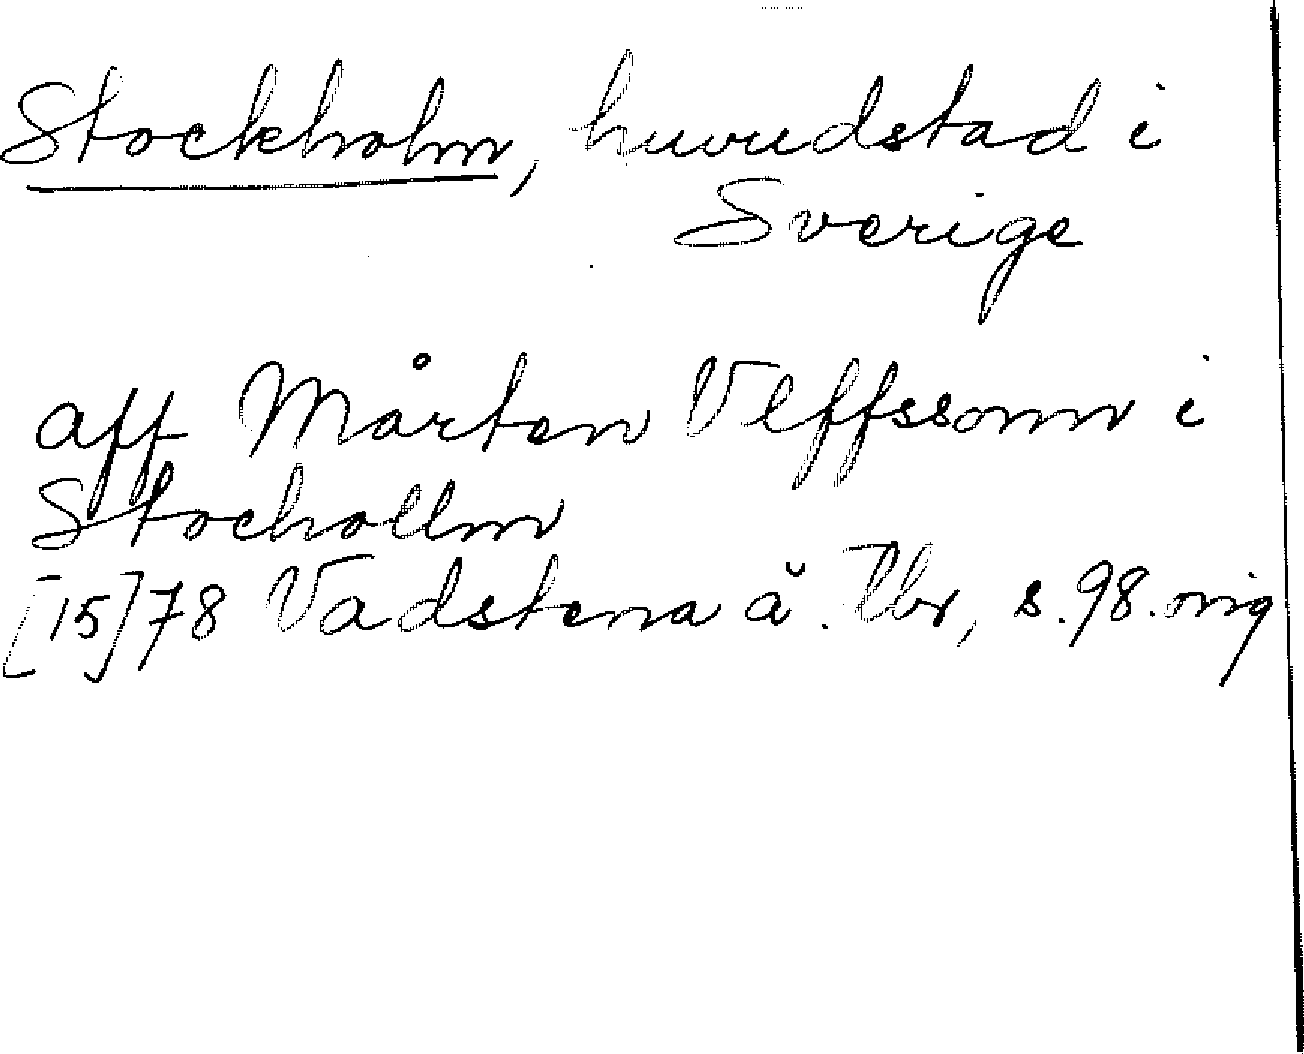 Stockholm, huvudstad i
Sverige
aff Mårten Vlffssonn i
Stochollm
[15]78 Vadstena ä. tbr, s. 98. orig